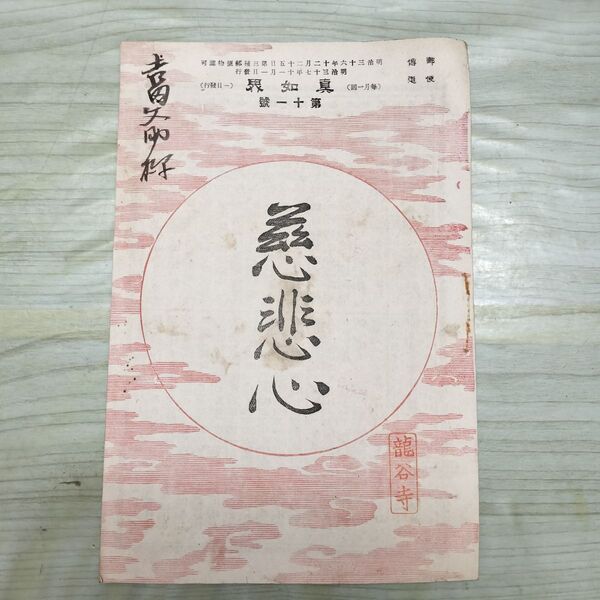 明治三十六年十二月二十五日第三種郵便物認可
明治三十七年十一月一日發行
郵便
傳道
(毎月一回)
眞如界
(一日發行)
第十一號
慈悲心
龍谷寺